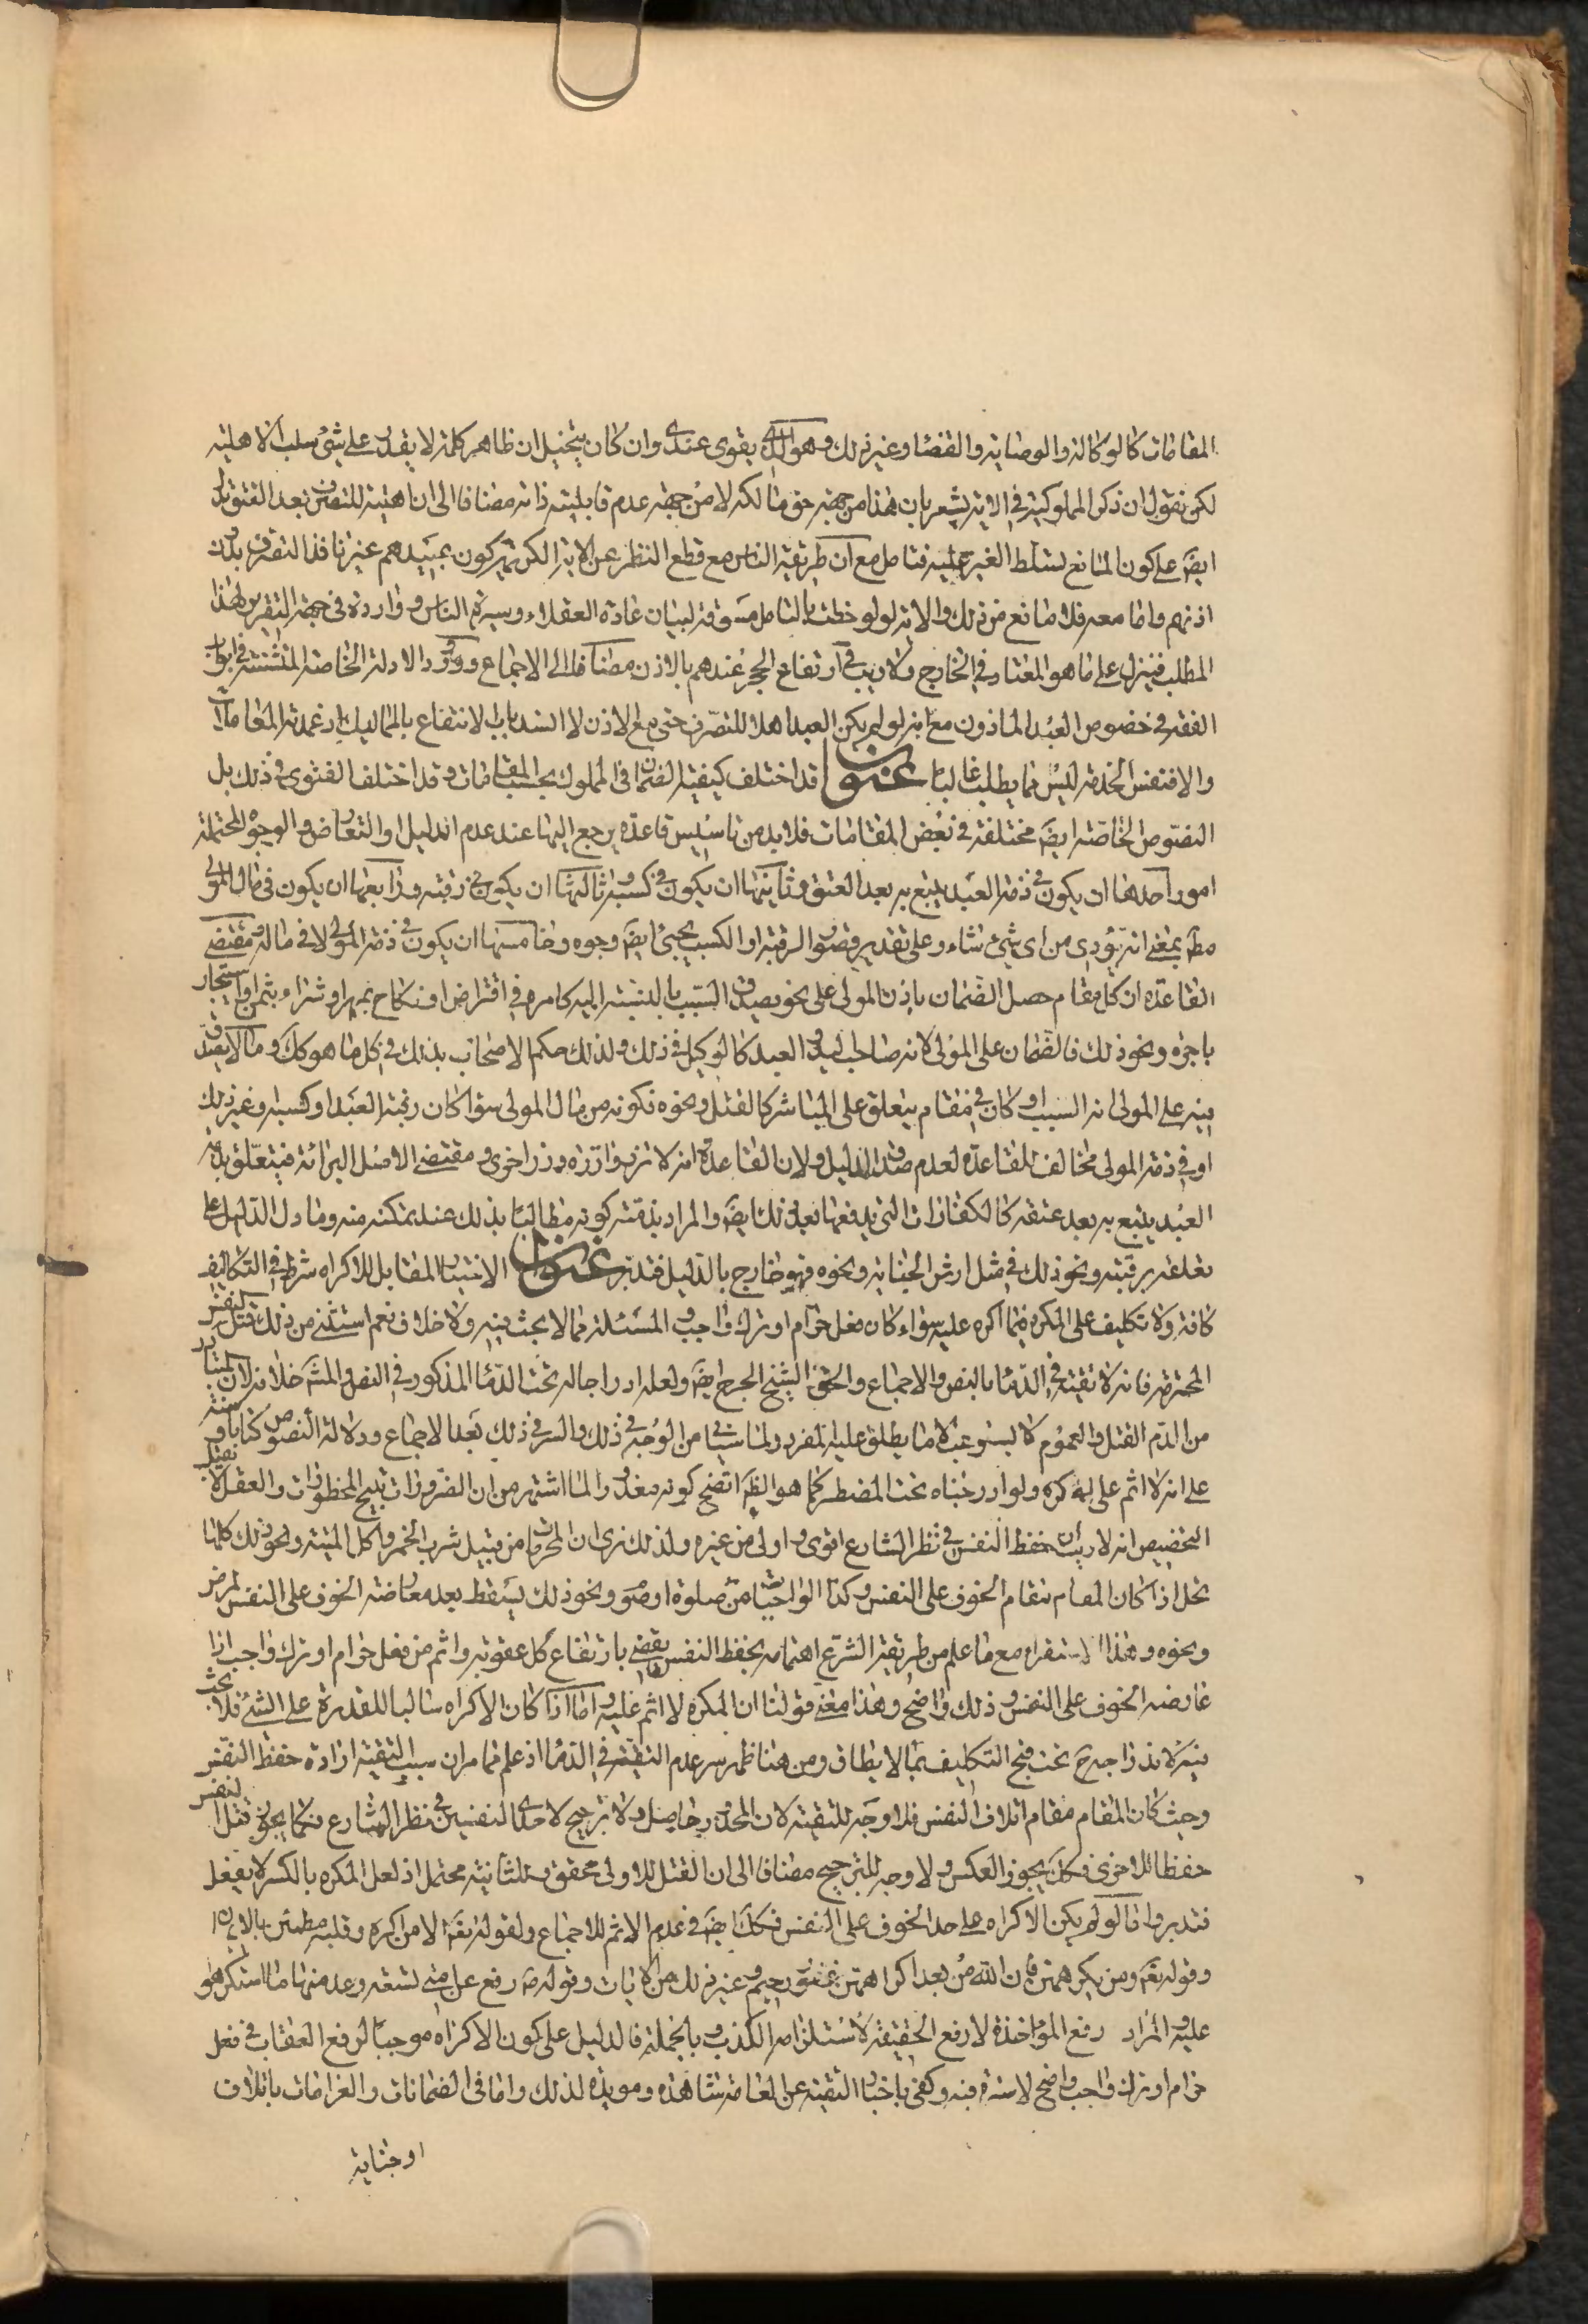 المقامات كالوكالة والوصاية والقضا وغير ذلك وهو الذي يقوى عندي وان كان يتخيل ان ظاهر كلمة لا يقدر على شئ سلب الاهلية
لكن نقول ان ذكر المملوكية في الاية يشعر بان هذا من جهة حق مالكه لا من جهة عدم قابليته ذاته مضافا الى ان اهليته للتصرف بعد العتق يدل
ايضَ على كون المانع تسلط الغير عليه فتامل مع ان طريقة الناس مع قطع النظر عن الاية الكريمة كون عبيدهم غير نافذ التصرف بدون
اذنهم واما معه فلا مانع من ذلك والاية لو لوحظت بالتامل مسوقة لبيان عادة العقلاء وسيرة الناس و واردة في جهة التقرير لهذا
المطلب فينزل على ما هو المعتاد في الخارج ولا ريب في ارتفاع الحجر عندهم بالاذن مضافا الى الاجماع وورود الادلة الخاصة المتشتتة في ابواب
الفقه في خصوص العبد الماذون مع انه لو لم يكن العبد اهلا للتصرف حتى مع الاذن لا انسد باب الانتفاع بالمماليك اذ عمدته المعاملات
والا فنفس الخدمة ليس مما يطلب غالبا عنوان قد اختلف كيفية الضمان في المملوك بحسب المقامات وقد اختلف الفتوى في ذلك بل
النصوص الخاصة ايضَ مختلفة في بعض المقامات فلا بد من تاسيس قاعدة يرجع اليها عند عدم الدليل او التعارض والوجوه المحتملة
امور احدها ان يكون في ذمة العبد يتبع به بعد العتق وثانيها ان يكون في كسبه وثالثها ان يكون في رقبته ورابعها ان يكون في مال المولى
مطَ بمعنى انه يؤدي من اي شئ شاء وعلى تقدير قصور الرقبة او الكسب يجئ ايضَ وجوه وخامسها ان يكون في ذمة المولى لا في ماله ومقتضى
القاعدة ان كل مقام حصل الضمان باذن المولى على نحو يصدق التسبيب بالنسبة اليه كامره في اقتراض او نكاح بمهر او شراء بثمن او استيجار
باجرة ونحو ذلك فالضمان على المولى لانه صاحب اليد والعبد كالوكيل في ذلك ولذلك حكم الاصحاب بذلك في كل ما هو كك وما لا يصدق
فيه على المولى انه السبب او كان في مقام يتعلق على المباشر كالقتل ونحوه فكونه من مال المولى سواء كان رقبة العبد او كسبه وغير ذلك
او في ذمة المولى مخالف للقاعدة لعدم صدق الدليل ولان القاعدة انه لا تزر وازرة وزر اخرى ومقتضى الاصل البرائة فيتعلق بذمة
العبد يتبع به بعد عتقه كالكفارات التي يدفعها بعد ذلك ايضَ والمراد بذمته كونه مطالبا بذلك عند تمكنه منه وما دل الدليل على
تعلقه برقبته ونحو ذلك في مثل ارش الجناية ونحوه فهو خارج بالدليل فتدبر عنوان الاختيار المقابل للاكراه شرط في التكاليف
كافة ولا تكليف على المكره فيما اكره عليه سواء كان فعل حرام او ترك واجب والمسئلة مما لا بحث فيه ولا خلاف نعم استثنى من ذلك قتل النفس
المحترمة فانه لا تقية في الدماء بالنص والاجماع والحق الشيخ الجرح ايضَ ولعله ادراجا له تحت الدماء المذكور في النص والمشَ خلافه لان المتبادر
من الدم القتل والعموم لا يستوعب الا ما يطلق عليه المفرد ولما سياتي من الوجه في ذلك والسر في ذلك بعد الاجماع ودلالة النصوص كتابا وسنة
على انه لا اثم على المكره ولو ادرجناه تحت المضطر كما هو الظَ اتضح كونه معذورا لما اشتهر من ان الضرورات تبيح المحظورات والعقل لا يقبل
التخصيص انه لا ريب ان حفظ النفس في نظر الشارع اقوى واولى من غيره ولذلك نرى ان المحرمات من قبيل شرب الخمر واكل الميتة ونحو ذلك كلها
تحل اذا كان المقام مقام الخوف على النفس وكذا الواجبات من صلوة او صوم ونحو ذلك يسقط بعد معارضة الخوف على النفس لمرض
ونحوه وهذا الاستقراء مع ما علم من طريقة الشرع اهتمامه بحفظ النفس يقضي بارتفاع كل عقوبة واثم من فعل حرام او ترك واجب اذا
عارضه الخوف على النفس وذلك واضح وهذا معنى قولنا ان المكره لا اثم عليه واما اذا كان الاكراه سالبا للقدرة على الشئ فلا بحث
فيه لاندراجه حَ تحت قبح التكليف بما لا يطاق ومن هنا ظهر سر عدم التقية في الدماء اذ علم مما مر ان سبب التقية ارادة حفظ النفس
وحيث كان المقام مقام اتلاف النفس فلا وجه للتقية لان المحذور حاصل ولا ترجيح لاحدى النفسين في نظر الشارع فكما يجوز قتل النفس
حفظا للاخرى فكك يجوز العكس ولا وجه للترجيح مضافا الى ان القتل للاولى محقق وللثانية محتمل اذ لعل المكره بالكسر لا يفعل
فتدبر واما لو لم يكن الاكراه على حد الخوف على النفس فكك ايضَ في عدم الاثم للاجماع ولقوله تعَ الا من اكره وقلبه مطمئن بالايمان
وقوله تعَ ومن يكرههن فان الله من بعد اكراههن غفور رحيم وغير ذلك من الايات وقوله صَ رفع عن امتي تسعة وعد منها ما استكرهوا
عليه والمراد رفع المؤاخذة لا رفع الحقيقة لاستلزامه الكذب وبالجملة فالدليل على كون الاكراه موجبا لرفع العقاب في فعل
حرام او ترك واجب واضح لا سترة فيه وكفى باخبار التقية عن العامة شاهدة ومويدة لذلك واما في الضمانات والغرامات باتلاف
او جناية